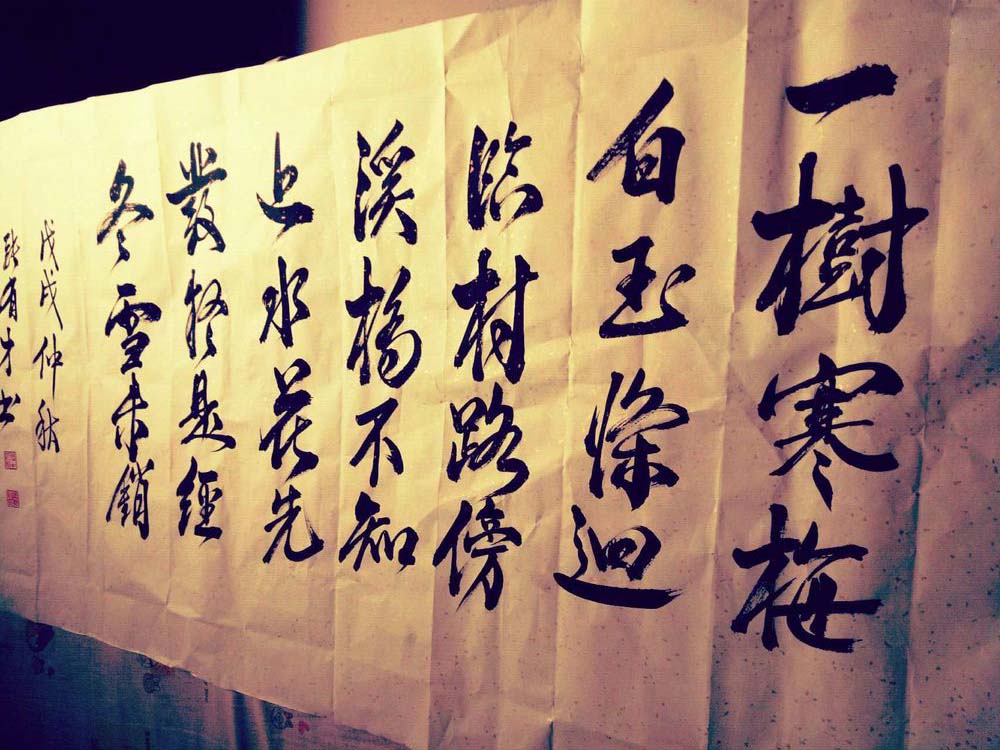 一樹寒梅
白玉條迴
臨村路傍
溪橋不知
近水花先
發疑是經
冬雪未銷
戊戌仲秋
有才书